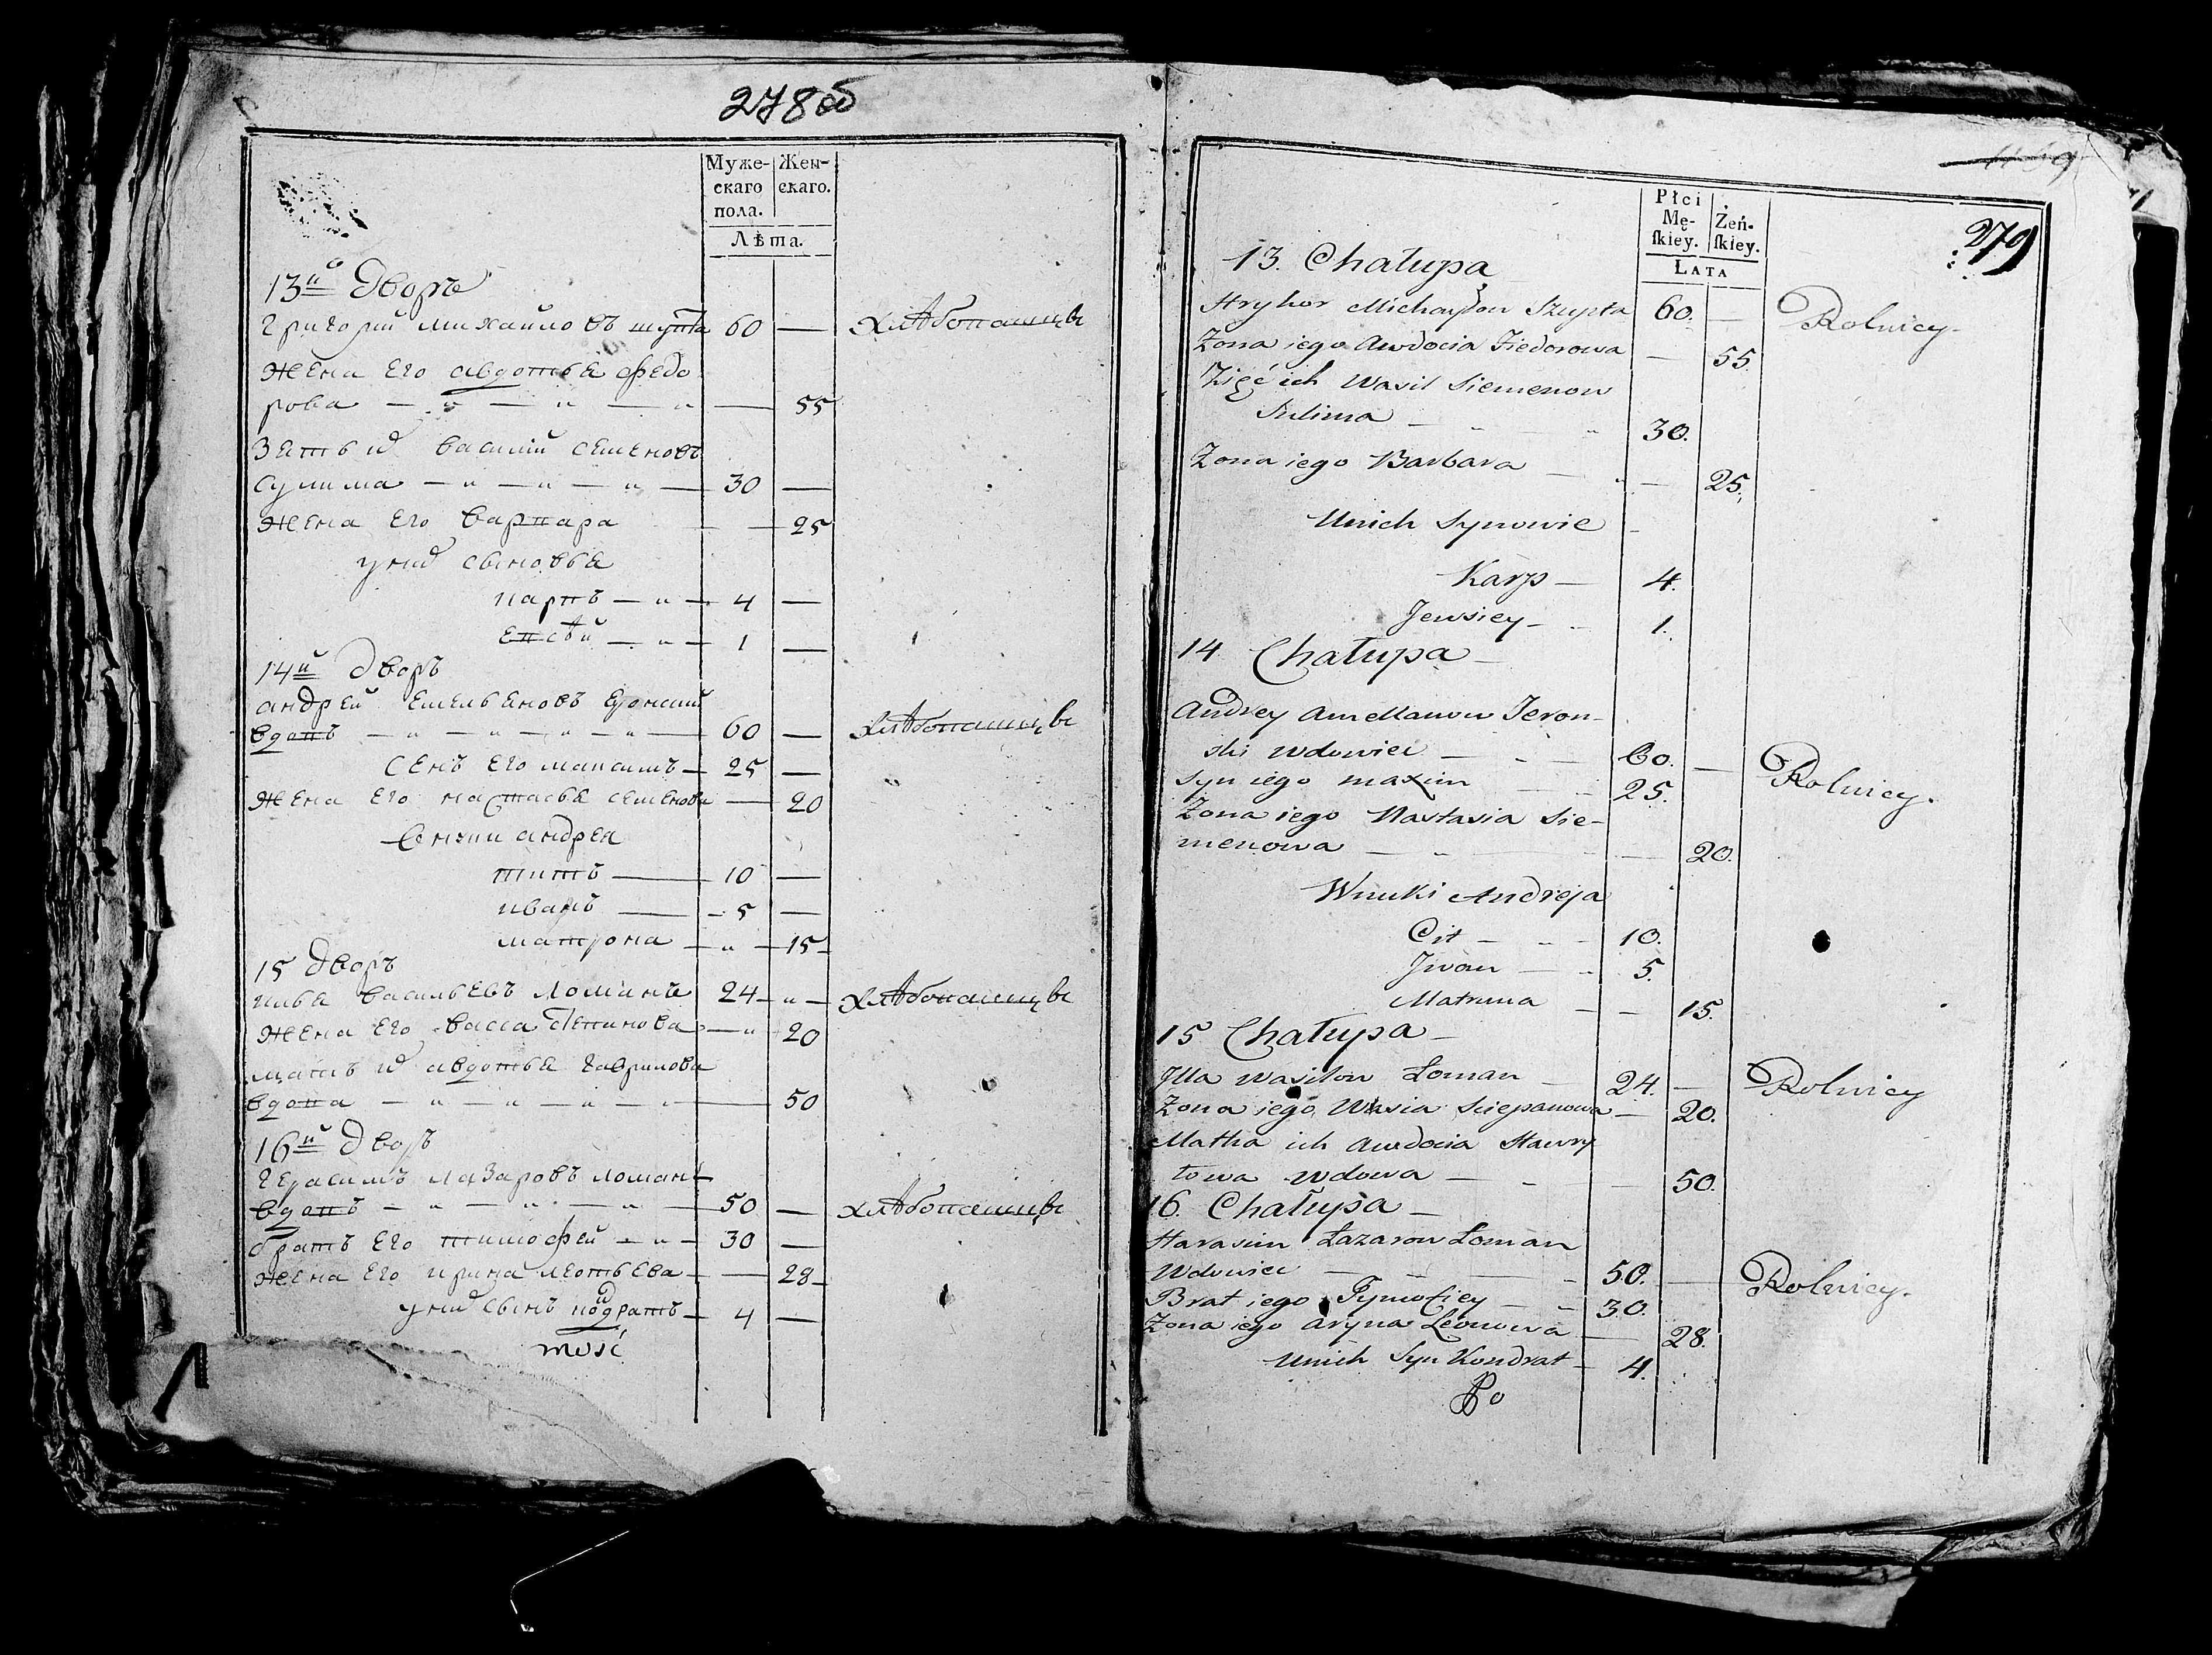 278 об
Муже-
скаго
пола.
Жен-
скаго.
Лѣта.
13й Дворъ
Григорій Михайловъ Шупта 60 — Хлѣбопашцы
Жена Его Авдотья Федо
рова — " — " — " — 55
Зять их Василій Семеновъ
Сулима — " — " — " — 30 —
Жена Его Варвара — 25
у них сыновья
Карпъ — " — 4 —
Евсѣй — " — 1 —
14й Дворъ
Андрей Емельяновъ
вдовъ — " — " — " — " — 60 — Хлѣбопашцы
Сынъ Его Максимъ — 25 —
Жена Его Настасья Семенова — 20
Внуки Андрея
Титъ — 10 —
Иванъ — 5 —
Матрона — " — 15 —
15 Дворъ
Илья Васильевъ Ломанъ 24 — " — Хлѣбопашцы
Жена Его Васса Степанова — " 20
Мать их Авдотья Гаврилова
вдова — " — " — " — " — 50
16й Дворъ
Герасимъ Лазаровъ Ломанъ
вдовъ — " — " — " — 50 — Хлѣбопашцы
братъ Его Тимофей — " — 30 —
Жена Его Ирина Леотьева — — 28 —
у них сынъ Кодратъ — 4 —
1159
279
Płci
Mę-
ſkiey.
Żeń-
ſkiey.
LATA
13. Chałupa
Hryhor Michayłow Szupta 60. — Rolnicy
Zona iego Awdocia Fiedorowa — 55.
Zięć ich Wasil Siemenow
Sulima — " — " 30.
Zona iego Barbara — " — 25.
Unich Synowie -
Karp — 4.
Jewsiey - - 1.
14 Chałupa —
Andrey Amellanow Jeron-
ski wdowiec — - — 60. — Rolnicy.
Syn iego maxim — 25.
Zona iego Nastasia Sie-
menowa — " — 20.
Wnuki Andreja
Cit — .. - 10.
Jwan — - 5.
Matruna — — 15.
15 Chałupa —
Jlla Wasilow Łoman — 24. — Rolnicy
Zona iego Wasia Sciepanowa — 20.
Matka ich Awdocia Hawry
łowa wdowa — - — 50.
16. Chałupa —
Harasim Łazarow Łoman
Wdowiec — — — - 50. — Rolnicy.
Brat iego Tymofiey — - 30.
Zona iego Aryna Leonowa — 28.
Unich Syn Kondrat - 4.
Po